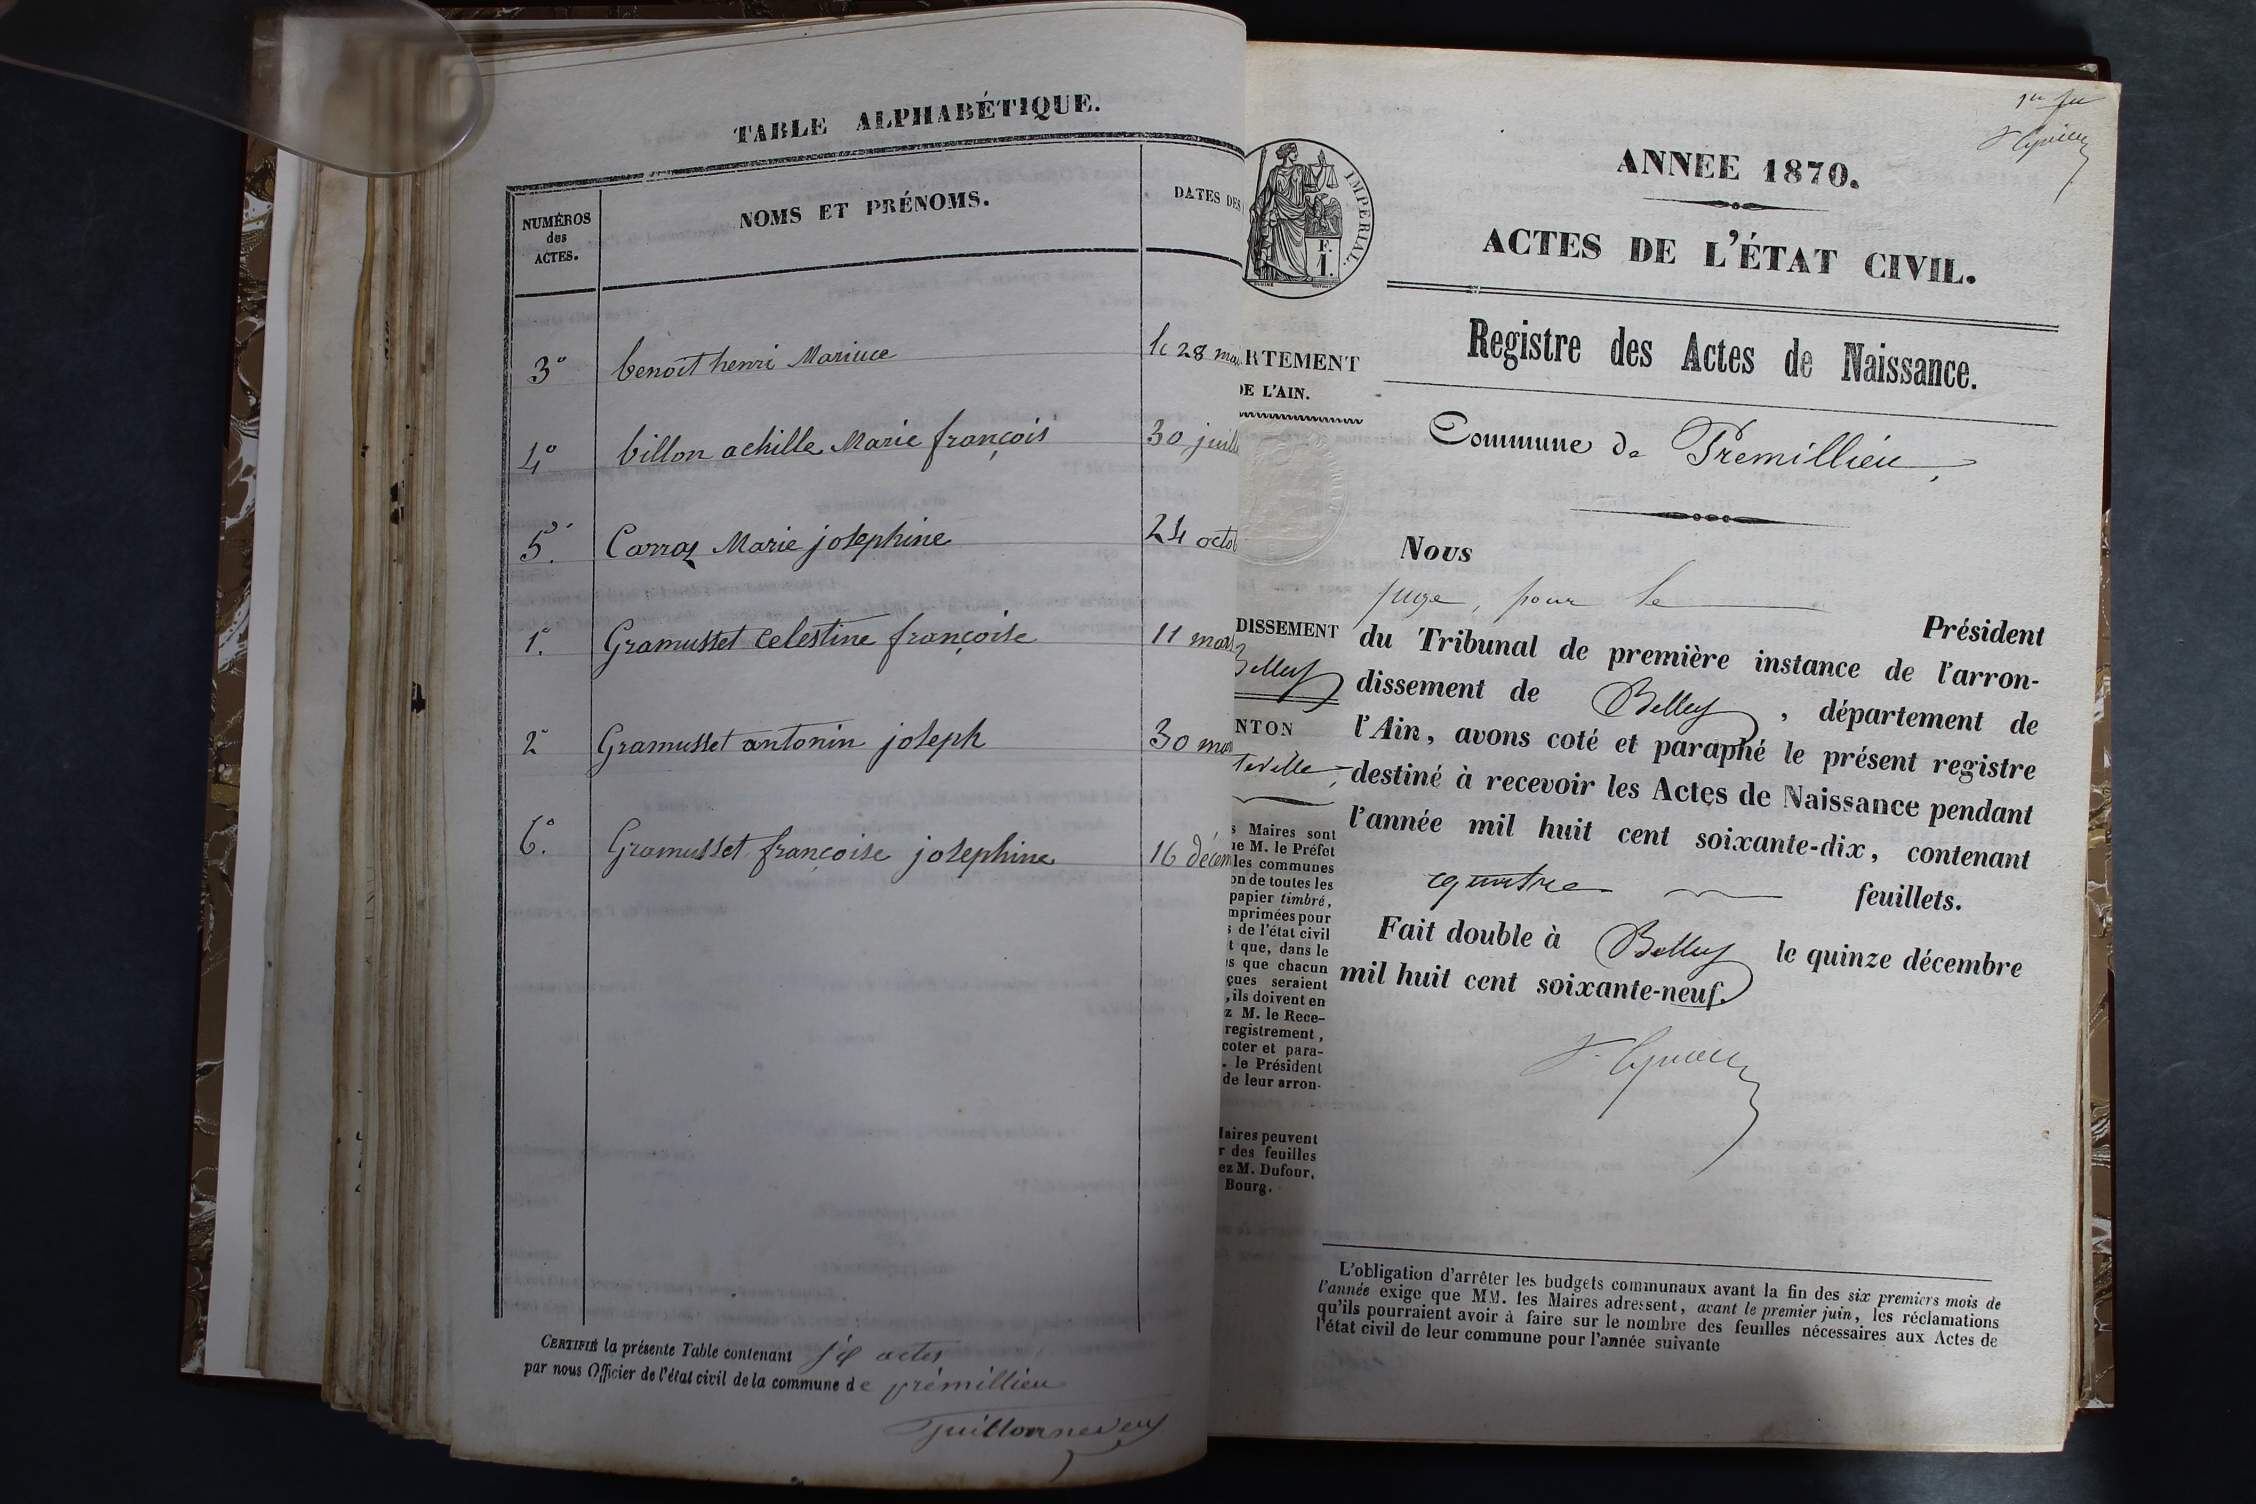 TABLE ALPHABÉTIQUE.
NUMÉROS
des
ACTES.
NOMS ET PRÉNOMS.
DATES DES
3° benoit henri Mariuce le 28 ma
4° billon achille Marie françois 30 juill
5. Carraz Marie josephine 24 octo
1. Gramusset Celestine françoise 11 mar
2 Gramusset antonin joseph 30 mar
6. Gramusset françoise josephine 16 décem
CERTIFIÉ la présente Table contenant six actes
par nous Officier de l'état civil de la commune de prémillieu
Guillonneveu
1er fet
ANNEE 1870.
ACTES DE L'ÉTAT CIVIL.
IMPERIAL.
F.
1.
Registre des Actes de Naissance.
RTEMENT
DE L'AIN.
Commune de Premillieu,
Nous
juge, pour le Président
du Tribunal de première instance de l'arron-
dissement de Belley, département de
l'Ain, avons coté et paraphé le présent registre
destiné à recevoir les Actes de Naissance pendant
l'année mil huit cent soixante-dix, contenant
quatre feuillets.
Fait double à Belley le quinze décembre
mil huit cent soixante-neuf.
DISSEMENT
Belley
NTON
teville
s Maires sont
ue M. le Préfet
les communes
on de toutes les
papier timbré,
mprimées pour
s de l'état civil
t que, dans le
s que chacun
çues seraient
, ils doivent en
z M. le Rece-
registrement,
coter et para-
. le Président
de leur arron-
Maires peuvent
r des feuilles
ez M. Dufour,
Bourg.
L'obligation d'arrêter les budgets communaux avant la fin des six premiers mois de
l'année exige que MM. les Maires adressent, avant le premier juin, les réclamations
qu'ils pourraient avoir à faire sur le nombre des feuilles nécessaires aux Actes de
l'état civil de leur commune pour l'année suivante